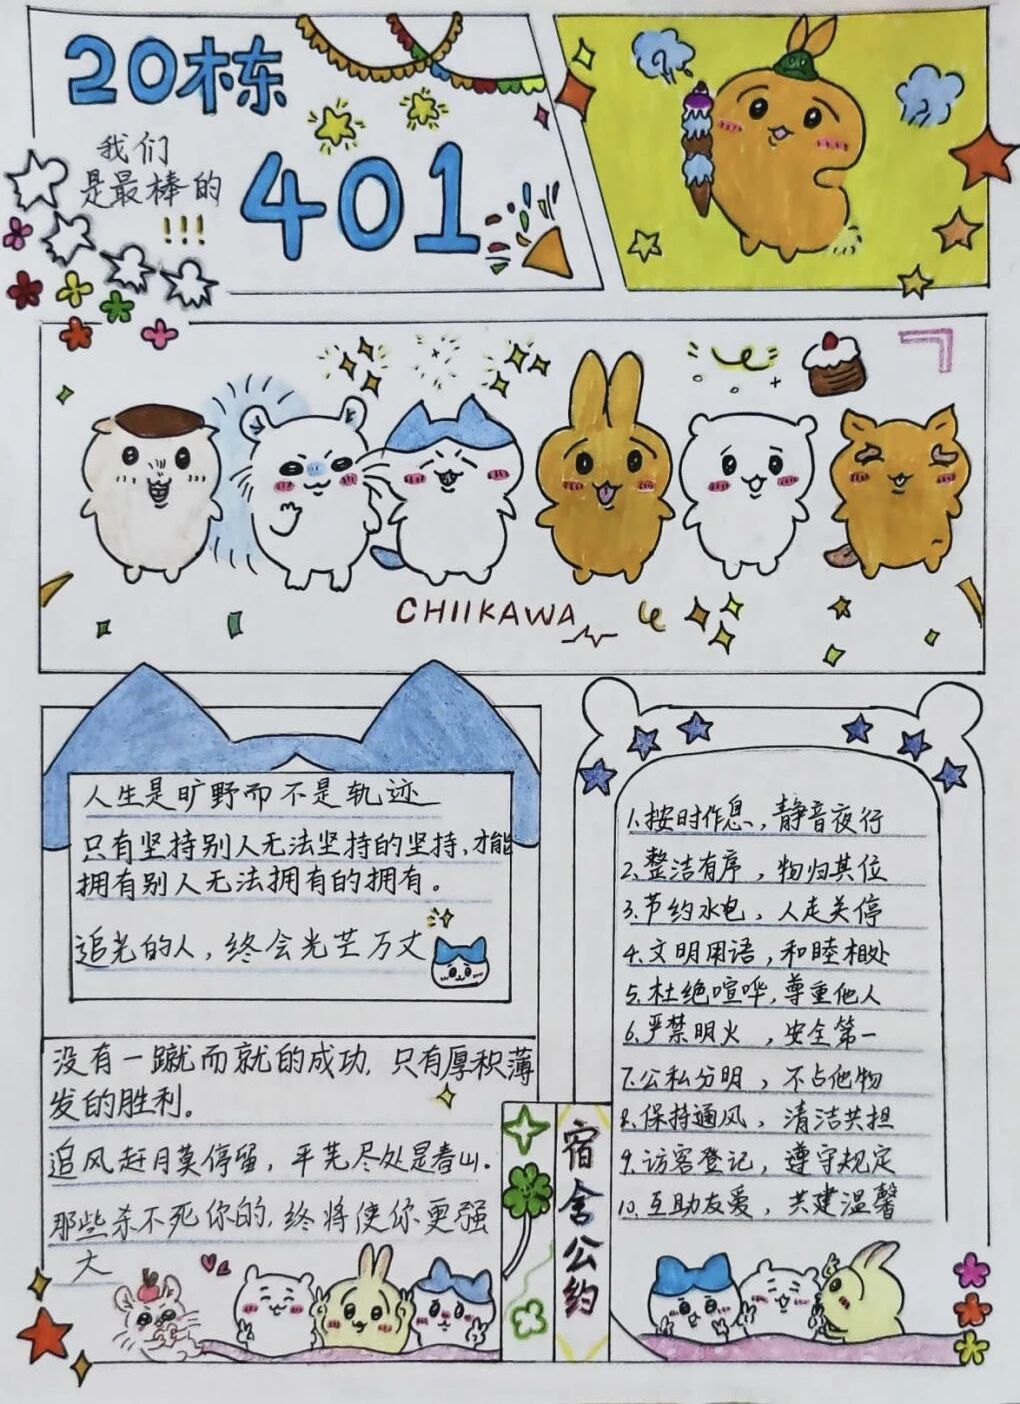 20栋
我们
是最棒的
!!!
401
CHIIKAWA
人生是旷野而不是轨迹
只有坚持别人无法坚持的坚持,才能
拥有别人无法拥有的拥有。
追光的人,终会光芒万丈
没有一蹴而就的成功,只有厚积薄
发的胜利。
追风赶月莫停留,平芜尽处是春山.
那些杀不死你的,终将使你更强
大
宿舍公约
1.按时作息,静音夜行
2.整洁有序,物归其位
3.节约水电,人走关停
4.文明用语,和睦相处
5.杜绝喧哗,尊重他人
6.严禁明火,安全第一
7.公私分明,不占他物
8.保持通风,清洁共担
9.访客登记,遵守规定
10.互助友爱,共建温馨